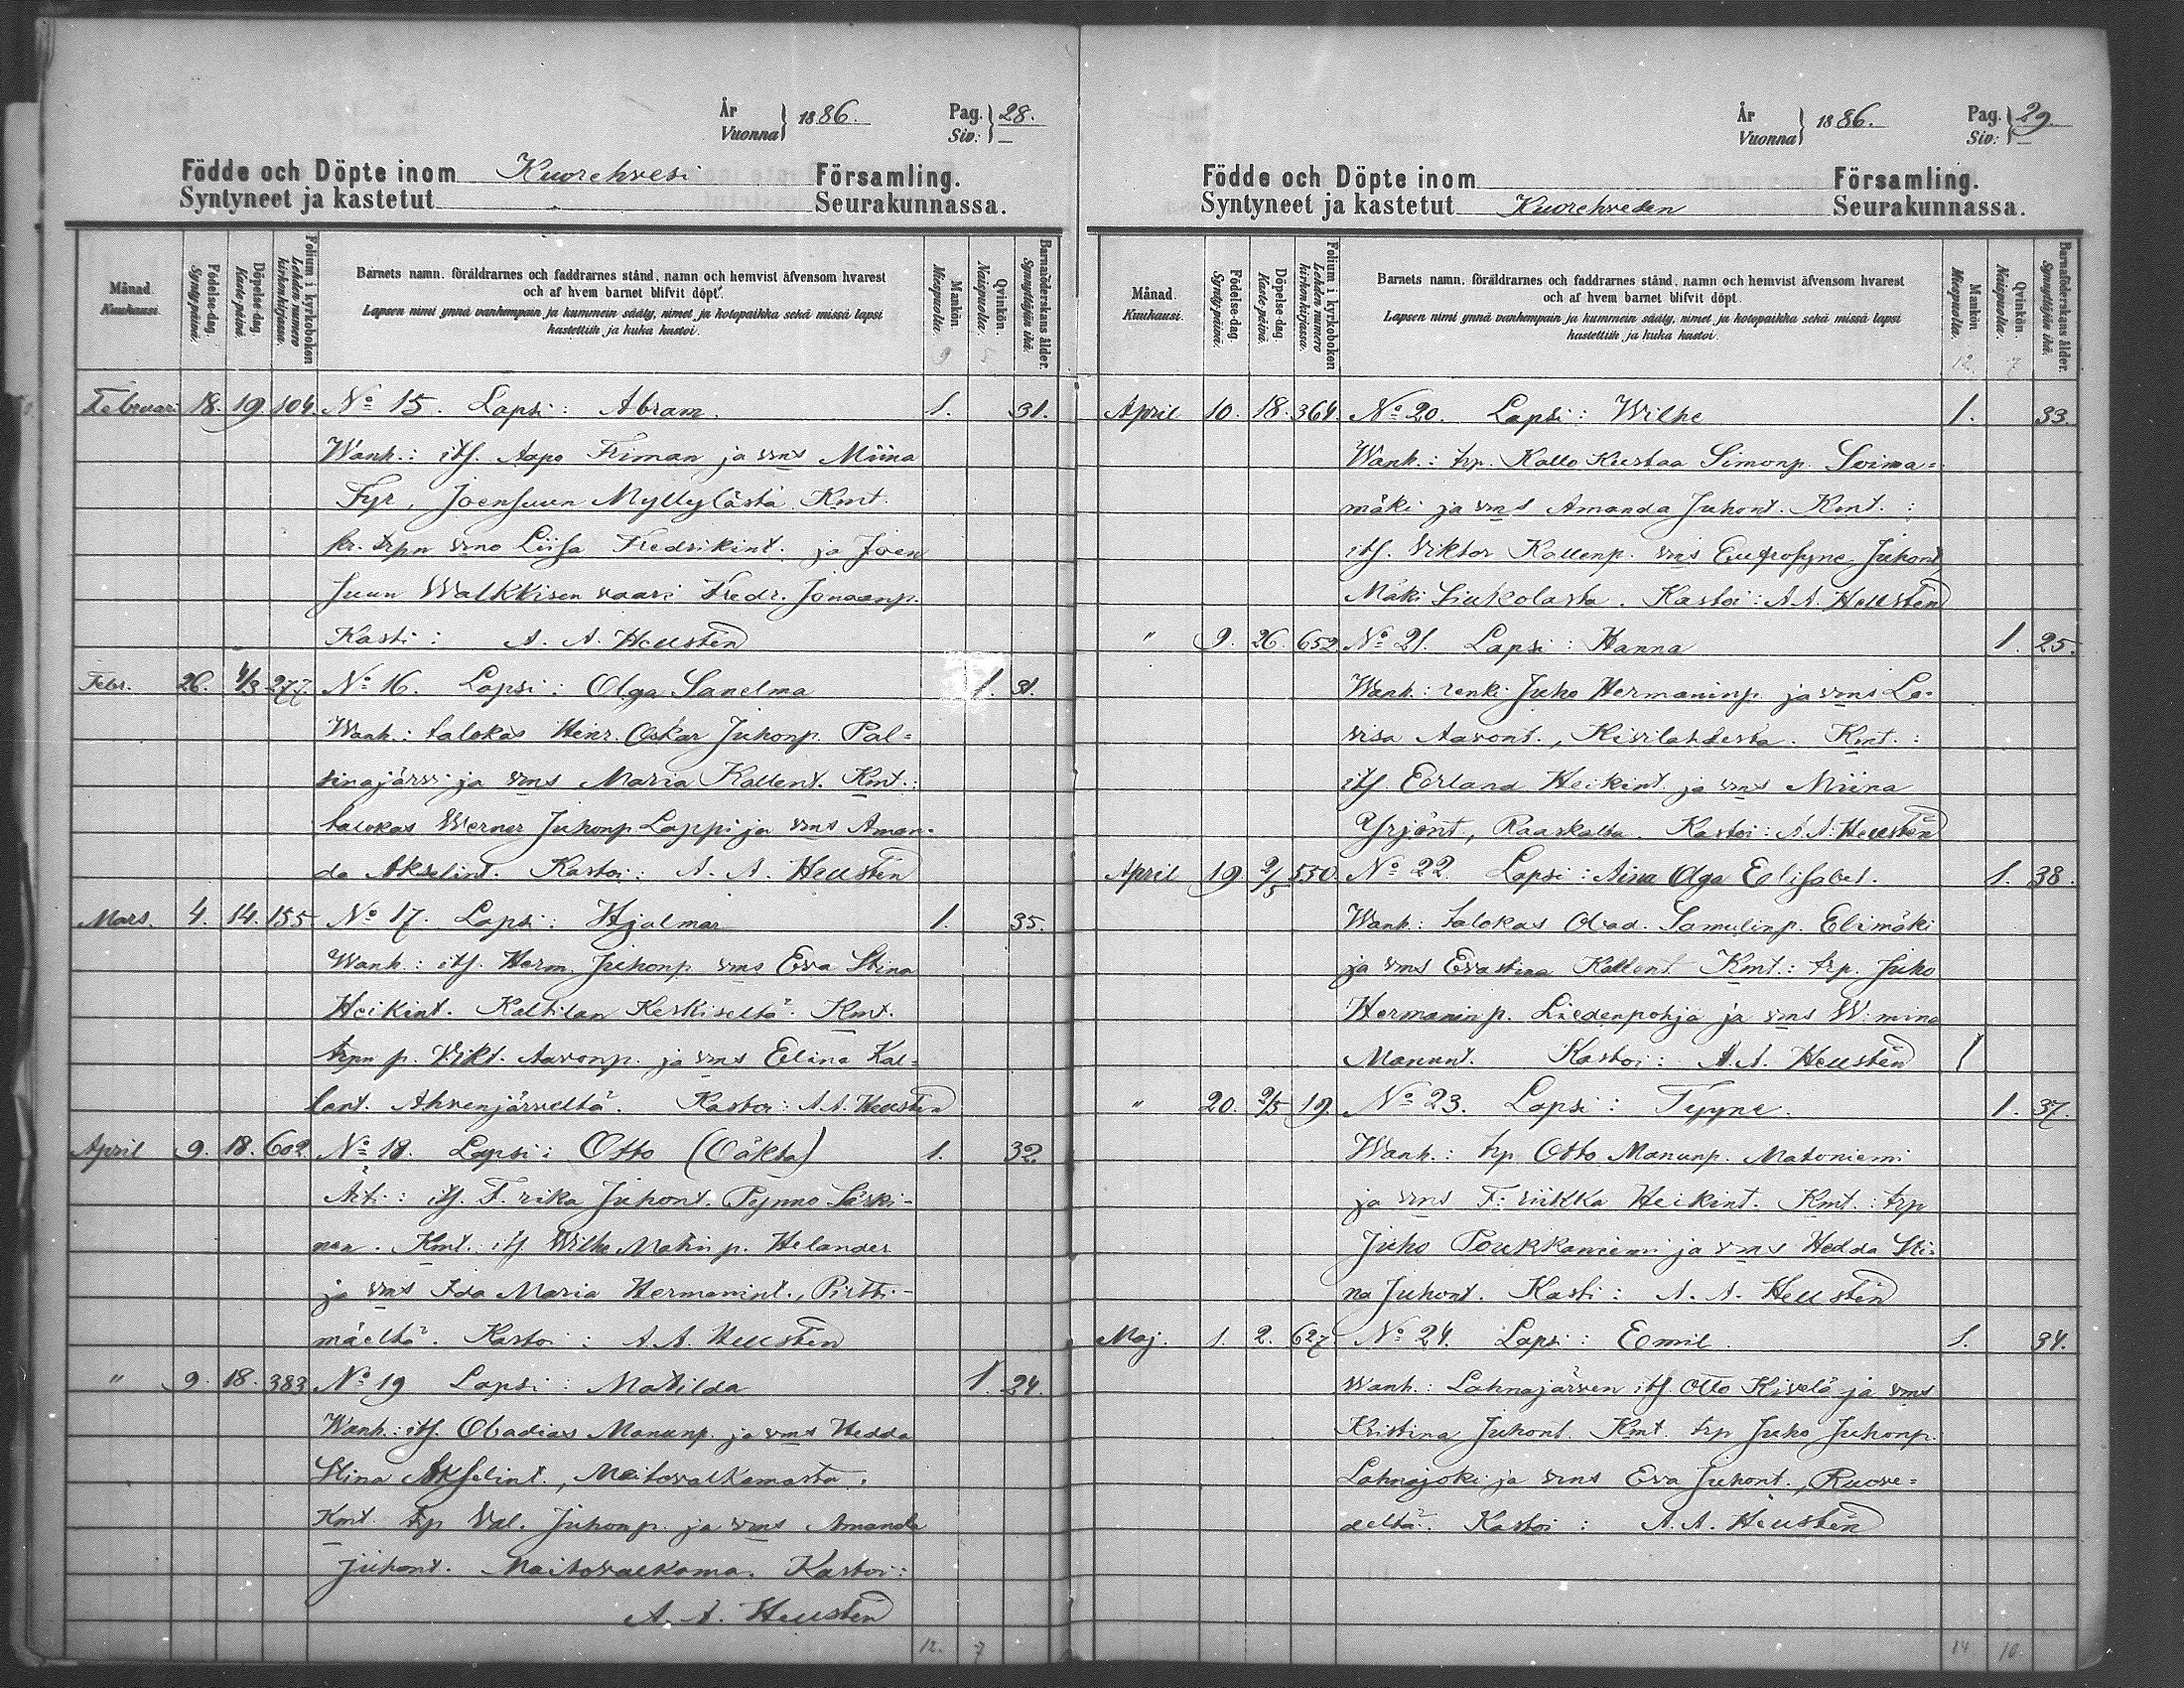 År
Vuonna } 1886. Pag. Siv: } 28.
Födde och Döpte inom Kuorehvesi Församling.
Syntyneet ja kastetut Seurakunnassa.
Månad. Kuukausi.
Födelse-dag. Syntypäivä.
Döpelse-dag. Kastepäivä.
Folium i kyrkoboken Lehden numero kirkonkirjassa.
Barnets namn, föräldrarnes och faddrarnes stånd, namn och hemvist äfvensom hvarest
och af hvem barnet blifvit döpt.
Lapsen nimi ynnä vanhempain ja kummein sääty, nimet ja kotopaikka sekä missä lapsi
kastettiin ja kuka kastoi.
Mankön. Miespuolia. 9
Qvinkön. Naispuolia. 5
Barnaföderskans ålder. Synnyttäjän ikä.
Februari 18. 19 104. No 15. Lapsi: Abram. 1. 31.
Wanh.: itf. Aapo Friman ja vms Miina
Fyr, Joensuun Myllylästä. Kmt.
kr. trpn vmo Liisa Fredrikint. ja Joen
suun Walkkisen vaari Fredr. Jonaanp.
Kasti: A. A. Heusten
Febr. 26. 4/3 277. No 16. Lapsi: Olga Sanelma 1. 31.
Wanh.: talokas Heinr. Oskar Juhonp. Pal=
sinajärvi ja vms Maria Kallent. Kmt.:
talokas Werner Juhonp Lappi ja vms Aman-
da Akselint. Kastoi: A. A. Heusten
Mars. 4. 14. 155. No 17. Lapsi: Hjalmar 1. 35.
Wanh.: itf. Herm. Juhonp vms Eva Stina
Heikint. Kaltilan Keskiseltä. Kmt.
trpn p. Vikt. Aavonp. ja vms Elina Kal=
lent. Ahvenjärveltä. Kastoi: A. A. Heusten
April 9. 18. 602. No 18. Lapsi: Otto (Oäkta) 1. 32.
Äiti: itf. F. rika Juhont. Pynno Särki-
nen. Kmt.: itf Wilhe Matinp. Helander
ja vms Ida Maria Hermanint., Pirtti-
mäeltä. Kastoi: A. A. Heusten
" 9. 18. 383 No 19 Lapsi: Matilda 1. 24.
Wanh.: itf. Obadias Manunp. ja vms Hedda
Stina Akselint., Maitovalkamasta.
Kmt. trp Val. Juhonp. ja vms Amanda
Juhont. Maitovalkama. Kastoi:
A. A. Heusten
12. 7
År
Vuonna } 1886. Pag. Siv: } 29.
Födde och Döpte inom Församling.
Syntyneet ja kastetut Kuorehveden Seurakunnassa.
Månad. Kuukausi.
Födelse-dag. Syntypäivä.
Döpelse-dag. Kastepäivä.
Folium i kyrkoboken Lehden numero kirkonkirjassa.
Barnets namn, föräldrarnes och faddrarnes stånd, namn och hemvist äfvensom hvarest
och af hvem barnet blifvit döpt.
Lapsen nimi ynnä vanhempain ja kummein sääty, nimet ja kotopaikka sekä missä lapsi
kastettiin ja kuka kastoi.
Mankön. Miespuolia. 12.
Qvinkön. Naispuolia. 7
Barnaföderskans ålder. Synnyttäjän ikä.
April 10. 18. 364. No 20. Lapsi: Wilhe 1. 33.
Wanh.: trp. Kalle Kustaa Simonp. Soima=
mäki ja vms Amanda Juhont. Kmt.:
itf. Viktor Kallenp. vms Eufrosyne Juhont
Mäki Liukolasta. Kastoi: A. A. Heusten
" 9. 26. 652 No 21. Lapsi: Hanna 1. 25.
Wanh.: renki Juho Hermaninp. ja vms Lo=
visa Aavont., Kivilahdesta. Kmt.:
itf. Eerland Heikint. ja vms Miina
Yrjönt, Raaskalta. Kastoi: A. A. Heusten
April 19 2/5 550. No 22. Lapsi: Aina Olga Elisabet. 1. 38.
Wanh.: talokas Obad. Samulinp. Elimäki
ja vms Evastina Kallent. Kmt.: trp. Juho
Hermaninp. Liedenpohja ja vms W:mina
Manunt. Kastoi: A. A. Heusten
" 20. 2/5 19. No 23. Lapsi: Tyyne. 1. 37.
Wanh.: trp Otto Manunp. Matoniemi
ja vms F: riikka Heikint. Kmt.: trp
Juho Poukkaniemi ja vms Hedda Sti-
na Juhont. Kasti: A. A. Heusten
Maj. 1. 2. 627. No 24. Lapsi: Emil 1. 34.
Wanh.: Lahnajärven itf. Otto Kivelä ja vms
Kristina Juhont. Kmt. trp Juho Juhonp.
Lahnajoki ja vms Eva Juhont., Ruove=
deltä. Kastoi: A. A. Heusten
14 10.